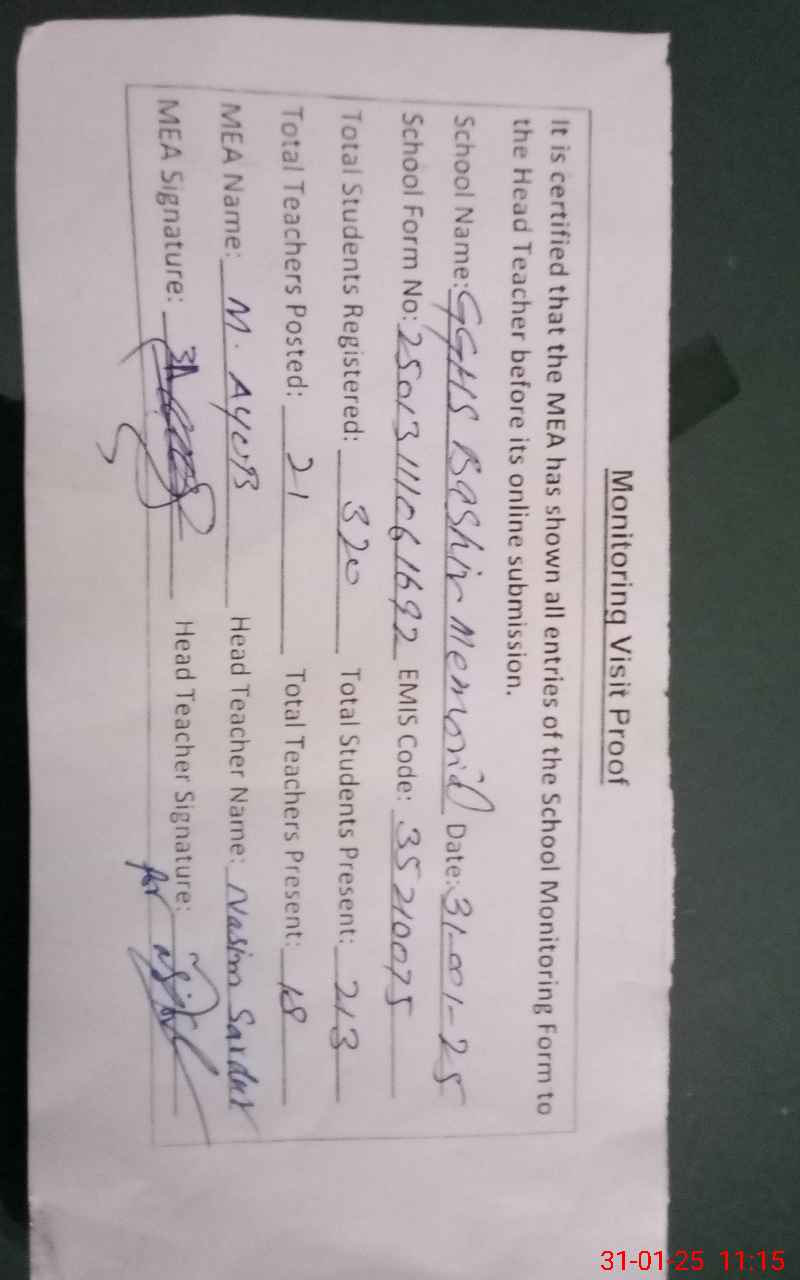 Monitoring Visit Proof
It is certified that the MEA has shown all entries of the School Monitoring Form to
the Head Teacher before its online submission.
School Name: GGHS Bashir Memorial Date: 31-01-25
School Form No: 25013111061692 EMIS Code: 35210075
Total Students Registered: 320 Total Students Present: 213
Total Teachers Posted: 21 Total Teachers Present: 18
MEA Name: M. Ayub Head Teacher Name: Nasim Sardar
MEA Signature: Head Teacher Signature:
for
31-01-25 11:15